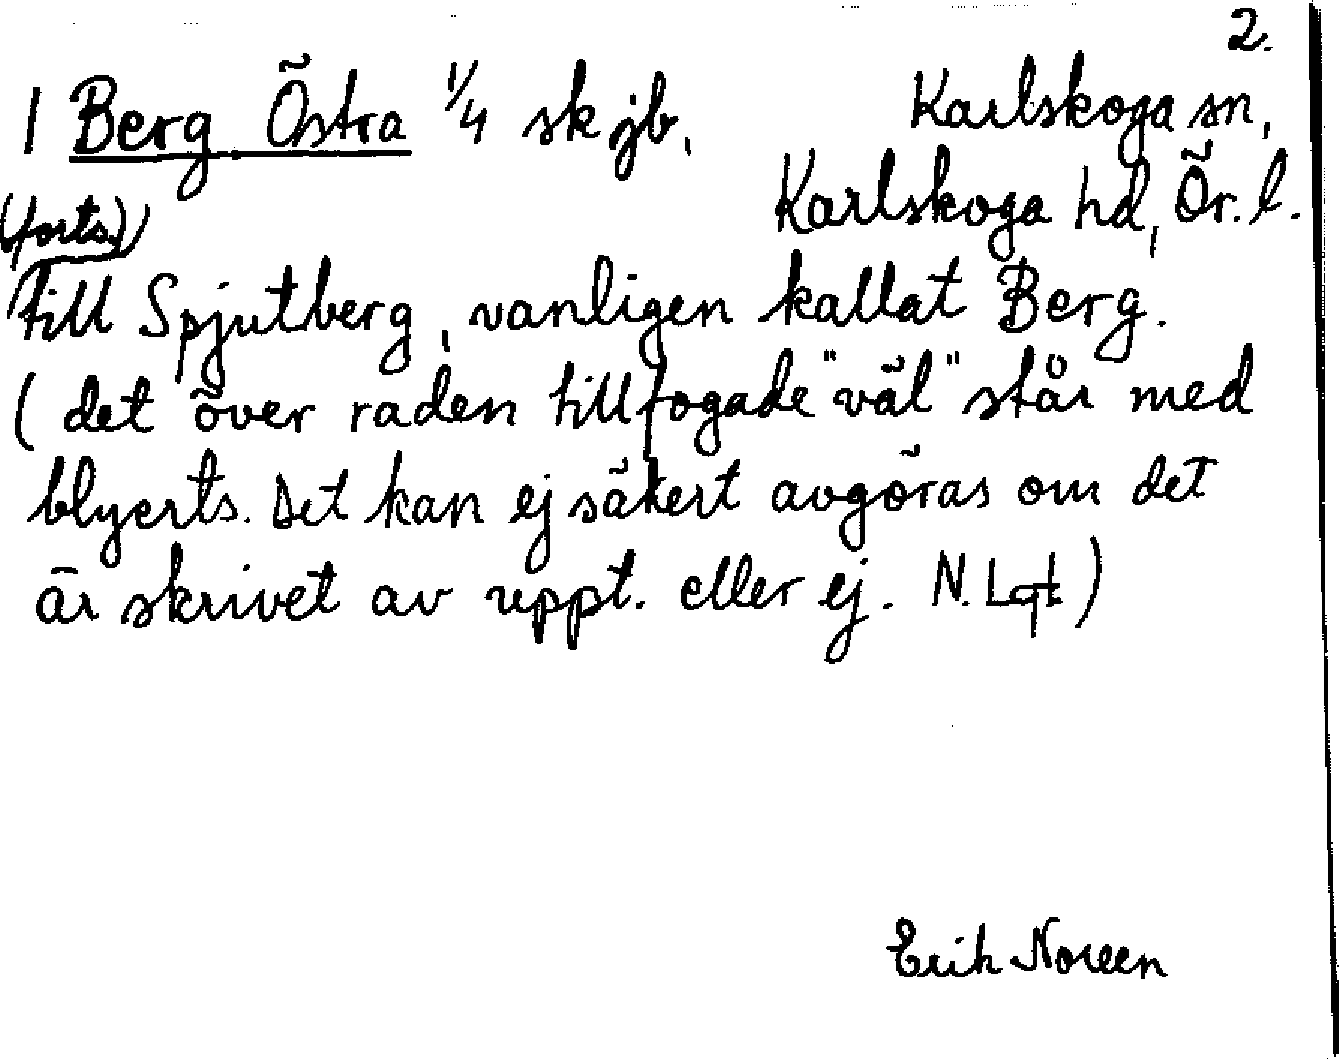 2.
1 Berg Östra 1/4 sk jb, Karlskoga sn,
(forts.) Karlskoga hd, Ör. l.
till Spjutberg, vanligen kallat Berg.
(det över raden tillfogade "väl" står med
blyerts. Det kan ej säkert avgöras om det
är skrivet av uppt. eller ej. N. Lqt)
Erik Noreen